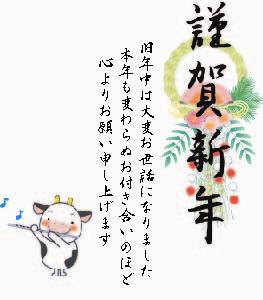 謹賀新年
旧年中は大変お世話になりました
本年も変わらぬお付き合いのほど
心よりお願い申し上げます